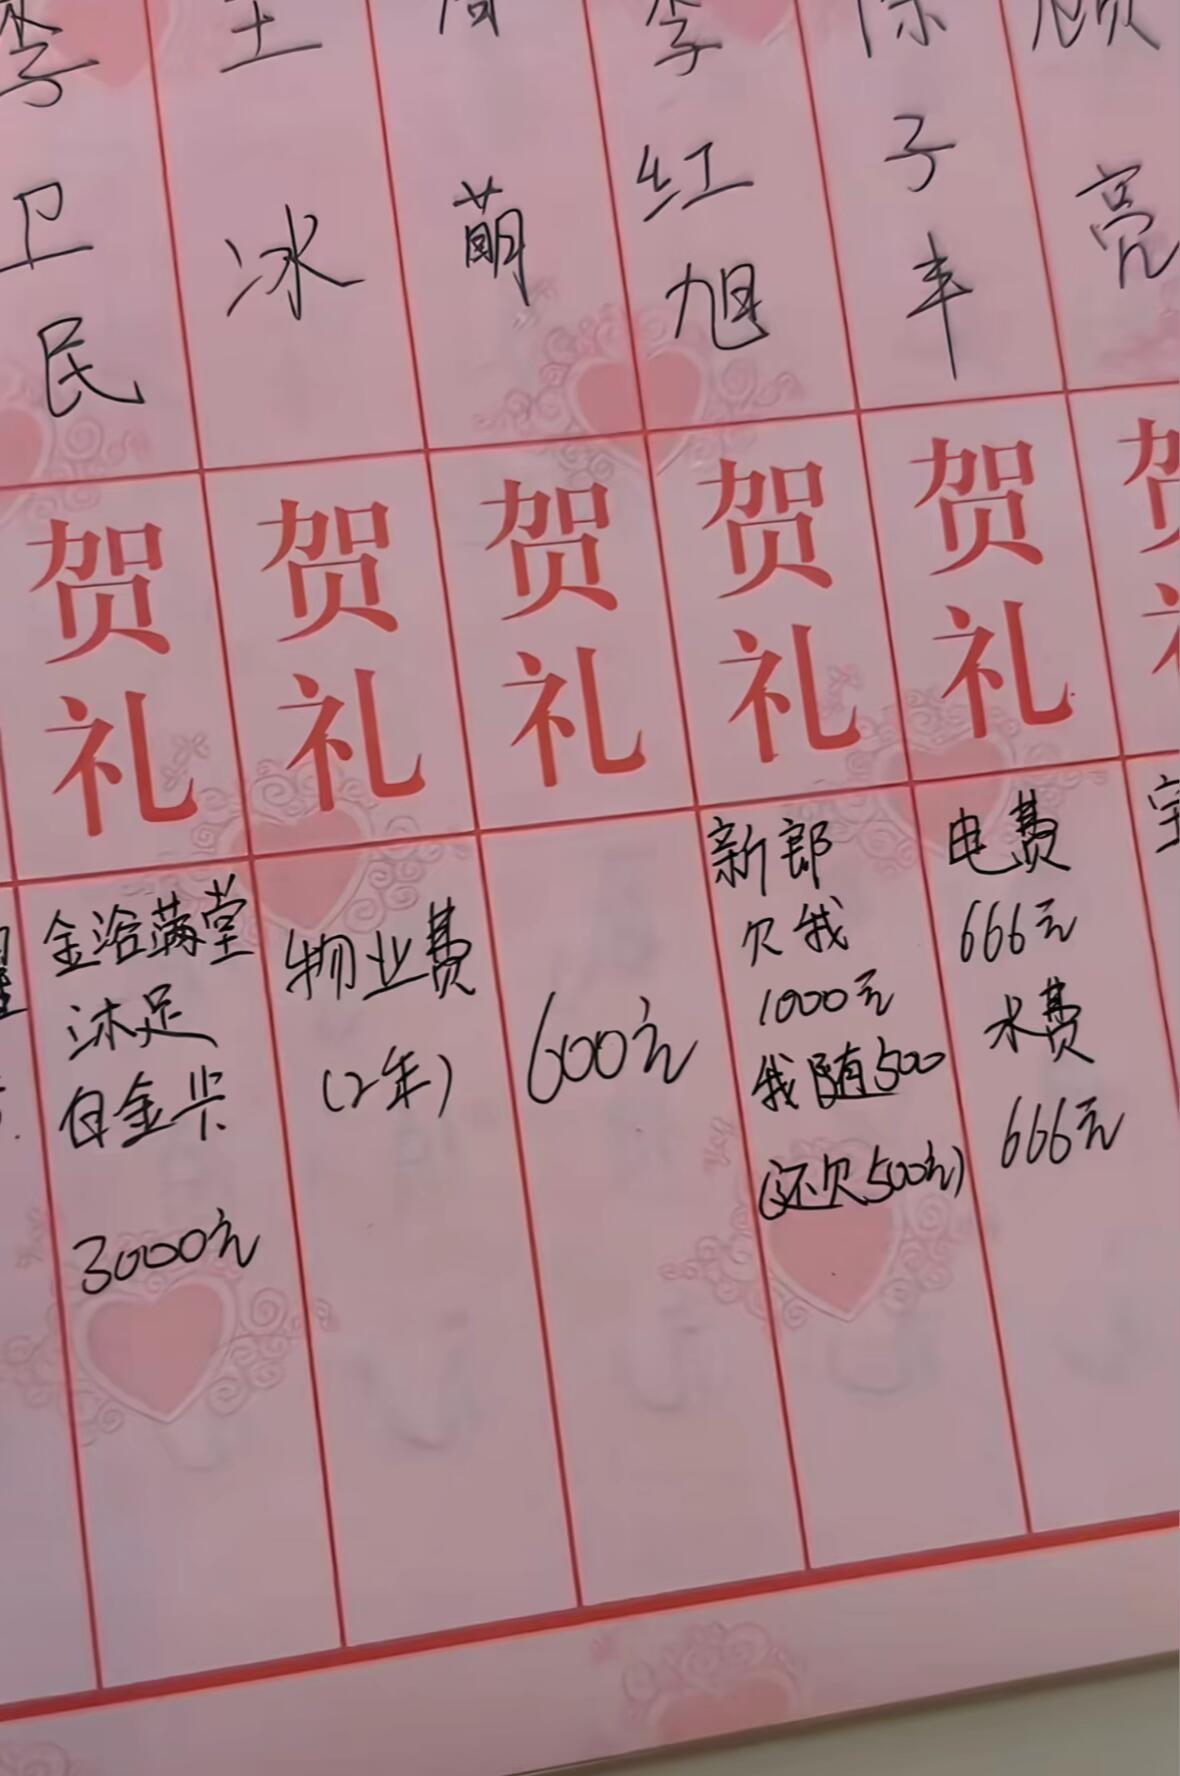 李卫民
王冰
萌
李红旭
子丰
顾亮
贺礼
贺礼
贺礼
贺礼
贺礼
金浴满堂
沐足
白金卡
3000元
物业费
(2年)
600元
新郎
欠我
1000元
我随500
(还欠500元)
电费
666元
水费
666元